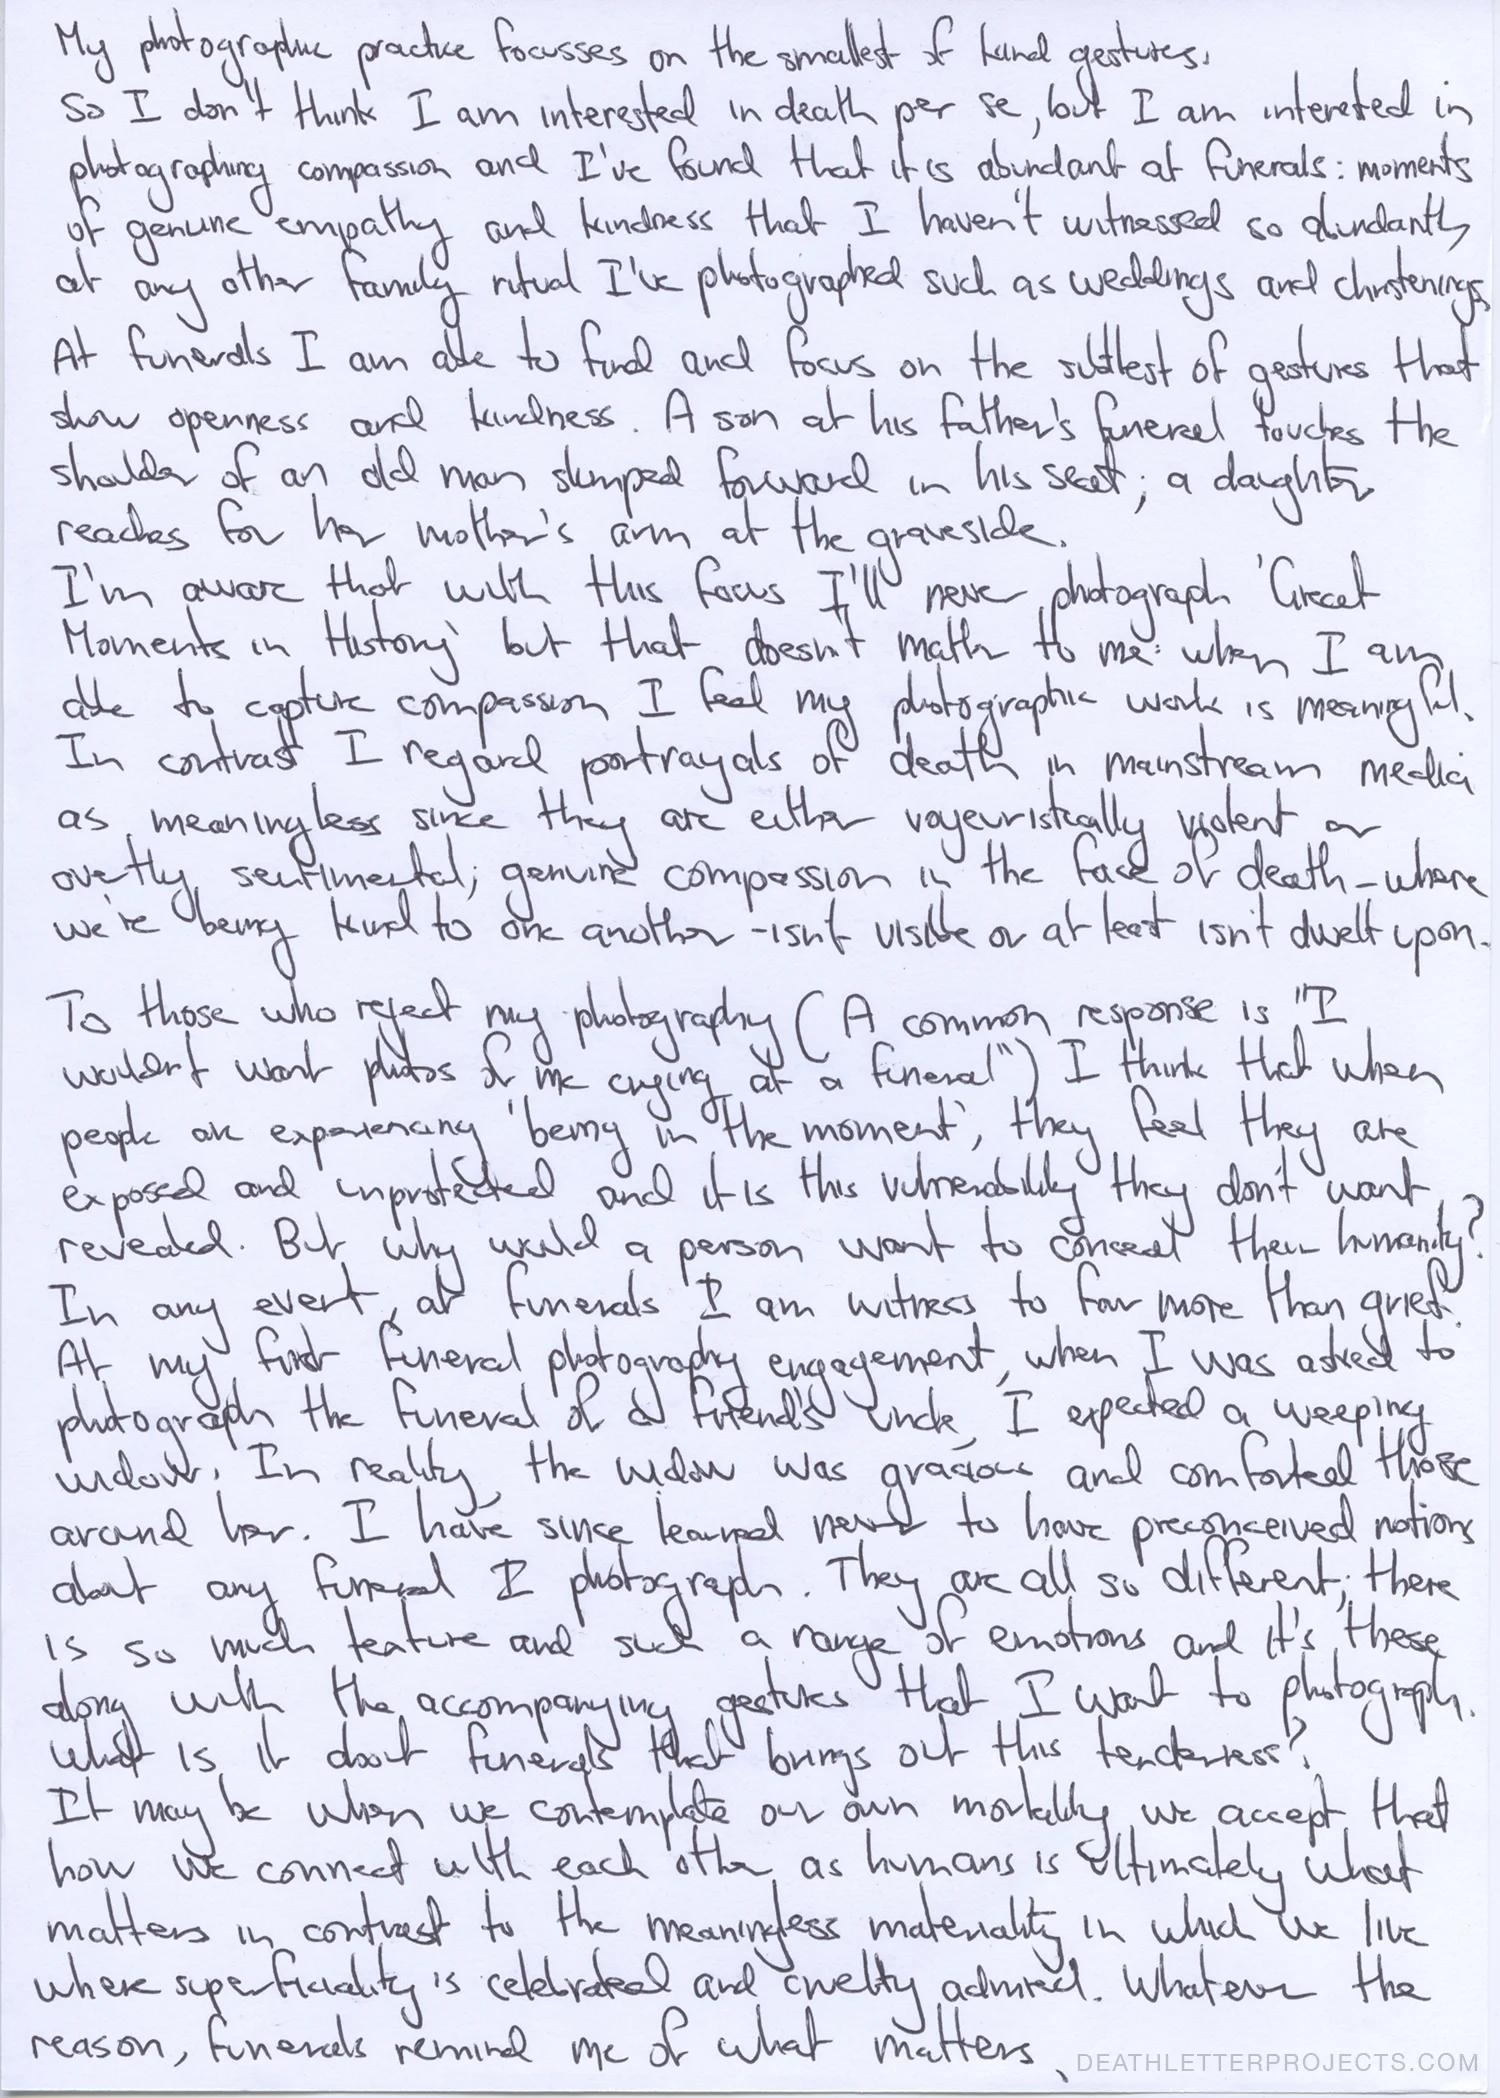 My photographic practice focusses on the smallest of kind gestures.
So I don't think I am interested in death per se, but I am interested in
photographing compassion and I've found that it is abundant at funerals: moments
of genuine empathy and kindness that I haven't witnessed so abundantly
at any other family ritual I've photographed such as weddings and christenings.
At funerals I am able to find and focus on the subtlest of gestures that
show openness and kindness. A son at his father's funeral touches the
shoulder of an old man slumped forward in his seat; a daughter
reaches for her mother's arm at the graveside.
I'm aware that with this focus I'll never photograph 'Great
Moments in History' but that doesn't matter to me: when I am
able to capture compassion I feel my photographic work is meaningful.
In contrast I regard portrayals of death in mainstream media
as meaningless since they are either voyeuristically violent or
overtly sentimental; genuine compassion in the face of death - where
we're being kind to one another - isn't visible or at least isn't dwelt upon.
To those who reject my photography (A common response is "I
wouldn't want photos of me crying at a funeral") I think that when
people are experiencing 'being in the moment', they feel they are
exposed and unprotected and it is this vulnerability they don't want
revealed. But why would a person want to conceal their humanity?
In any event, at funerals I am witness to far more than grief.
At my first funeral photography engagement, when I was asked to
photograph the funeral of a friend's uncle, I expected a weeping
widow. In reality, the widow was gracious and comforted those
around her. I have since learned never to have preconceived notions
about any funeral I photograph. They are all so different; there
is so much texture and such a range of emotions and it's these
along with the accompanying gestures that I want to photograph.
What is it about funerals that brings out this tenderness?
It may be when we contemplate our own mortality we accept that
how we connect with each other as humans is ultimately what
matters in contrast to the meaningless materiality in which we live
where superficiality is celebrated and cruelty admired. Whatever the
reason, funerals remind me of what matters.
DEATHLETTERPROJECTS.COM